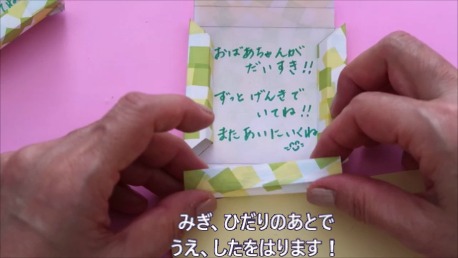 おばあちゃんが
だいすき!!
ずっとげんきで
いてね!!
またあいにいくね
みぎ、ひだりのあとで
うえ、したをはります！